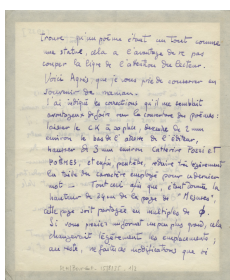 trouve qu'un poème c'est un tout comme
une statue, cela a l'avantage de ne pas
couper la ligne de l'attention du lecteur.
Voici Agnès que je vous prie de conserver en
souvenir de maman.
J'ai indiqué les corrections qu'il me semblait
avantageux de faire sur la couverture du poème :
laisser le CK à sa place, descendre de 2 mm
environ le bas de l'adresse de l'éditeur
hausser de 3 mm environ Catherine Pozzi et
POÈMES, et enfin, peut-être, réduire très légèrement
la taille du caractère employé pour ce dernier
mot — Tout cela afin que, étant donné la
hauteur de 24 cm de la page de "Mesures",
cette page soit partagée en multiples de φ.
Si vous preniez un format un peu plus grand, cela
changerait légèrement les emplacements ;
au reste, ne faites ces modifications que si